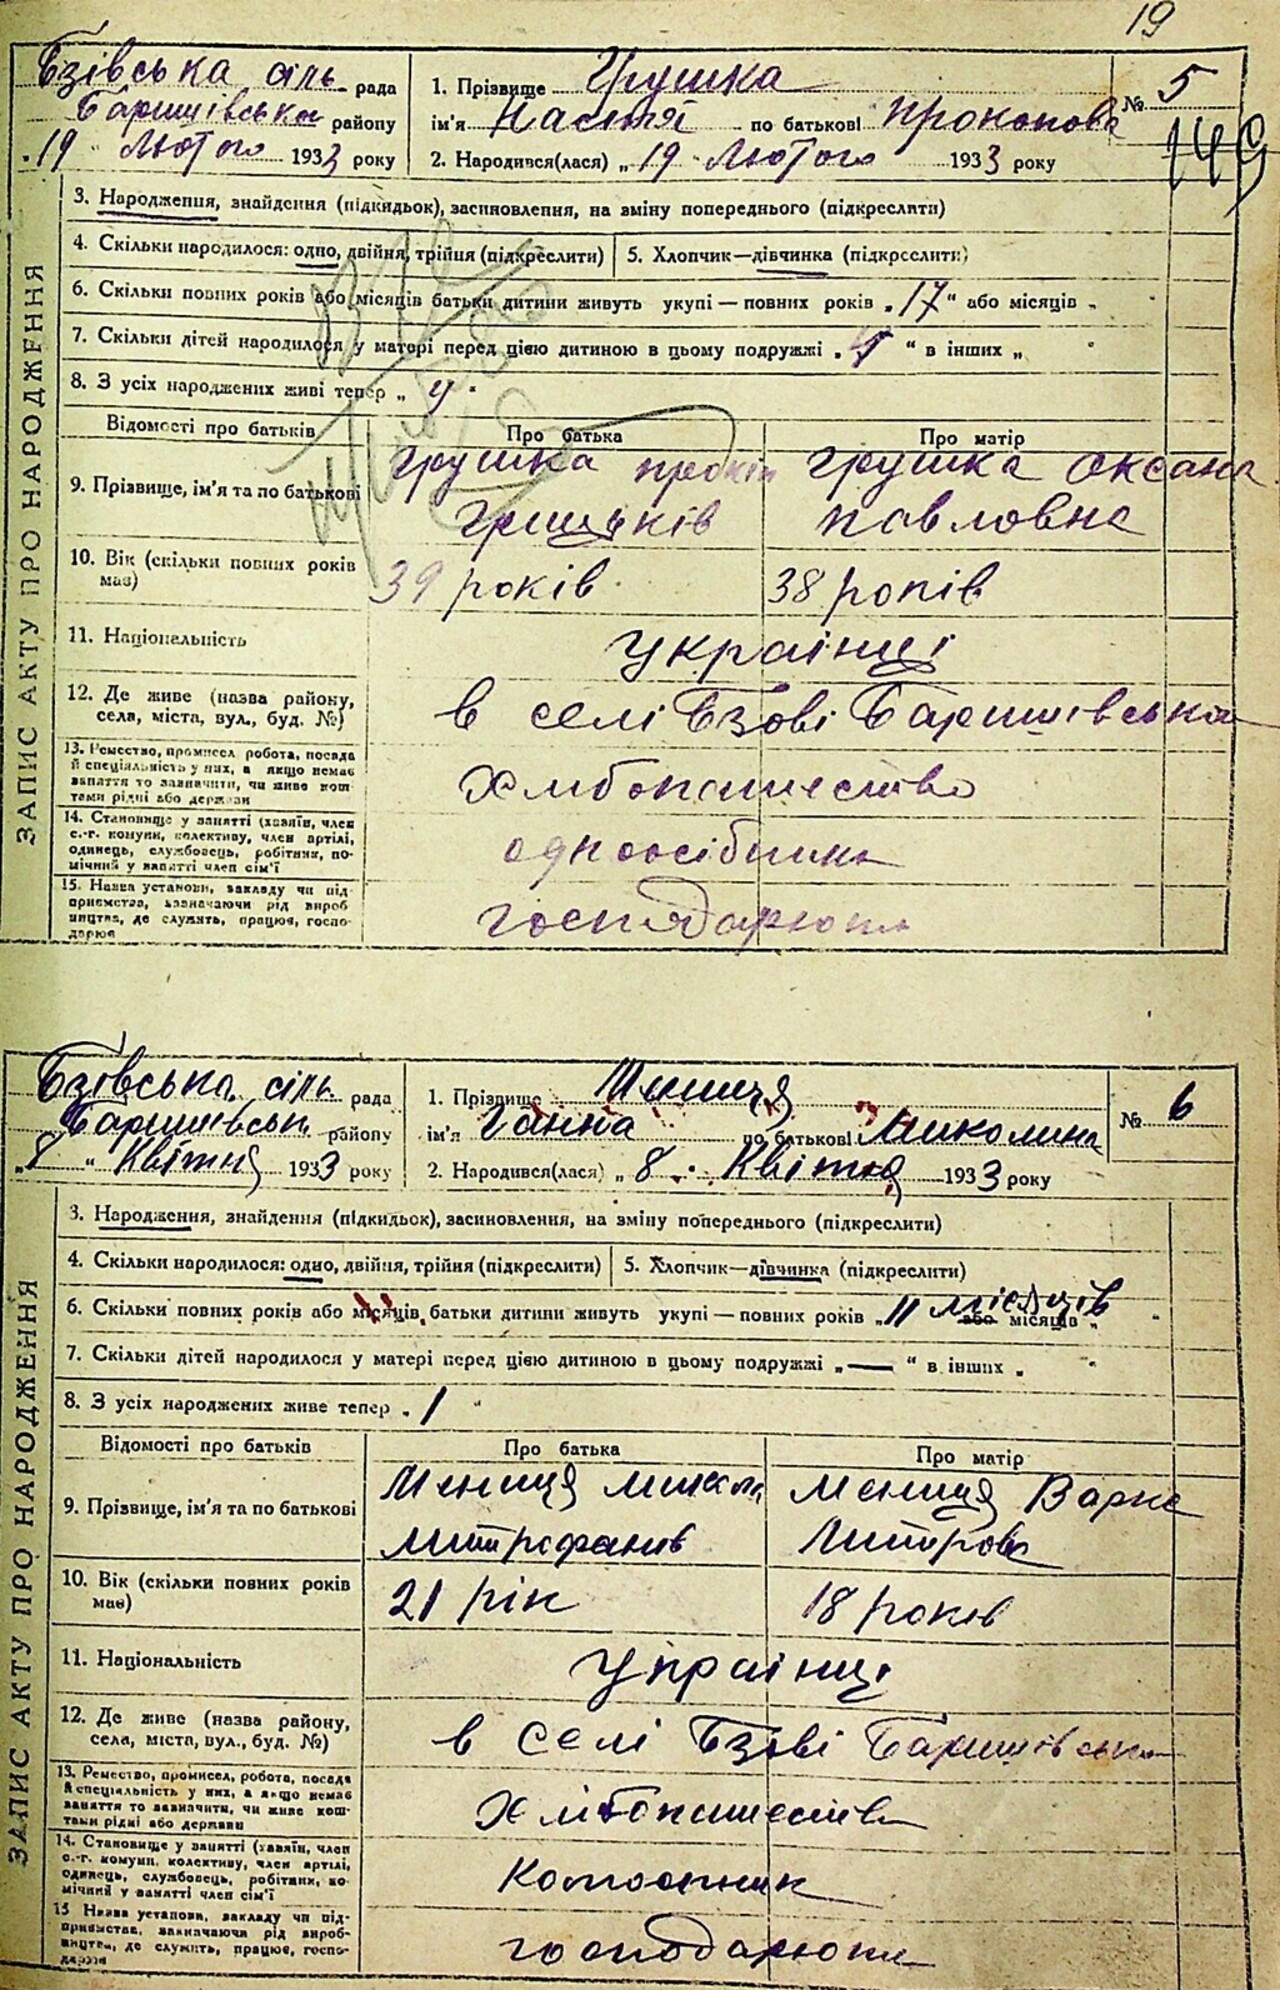 19
Бзівська сіль. рада
Баришівська району
„19“ Лютого 1933 року
1. Прізвище Грушка
ім'я Настя по батькові Прокопова
2. Народився(лася) „19“ Лютого 1933 року
№ 5
149
ЗАПИС АКТУ ПРО НАРОДЖЕННЯ
3. Народження, знайдення (підкидьок), засиновлення, на зміну попереднього (підкреслити)
4. Скільки народилося: одно, двійня, трійня (підкреслити)
5. Хлопчик—дівчинка (підкреслити)
6. Скільки повних років або місяців батьки дитини живуть укупі — повних років „17“ або місяців „ “
7. Скільки дітей народилося у матері перед цією дитиною в цьому подружжі „ “ в інших „ “
8. З усіх народжених живі тепер „4“
Відомості про батьків
Про батька
Про матір
9. Прізвище, ім'я та по батькові
Грушка Прокіп
Грицьків
Грушка Оксана
Павловна
10. Вік (скільки повних років
має)
39 років
38 років
11. Національність
Українці
12. Де живе (назва району,
села, міста, вул., буд. №)
в селі Бзові Баришівська
13. Ремество, промисел, робота, посада
й спеціяльність у них, а якщо немає
заняття то зазначити, чи живе кош-
тами рідні або держави
Хлібопашество
14. Становище у занятті (хазяїн, член
с.-г. комуни, колективу, член артілі,
одинець, службовець, робітник, по-
мічний у занятті член сім'ї
одноосібника
15. Назва установи, закладу чи під-
приємства, зазначаючи рід вироб-
ництва, де служить, працює, госпо-
дарює
господарюют
Бзівська сіль. рада
Баришівськ району
„8“ Квітня 1933 року
1. Прізвище Мениця
ім'я Ганна по батькові Миколина
2. Народився(лася) „8“ Квітня 1933 року
№ 6
ЗАПИС АКТУ ПРО НАРОДЖЕННЯ
3. Народження, знайдення (підкидьок), засиновлення, на зміну попереднього (підкреслити)
4. Скільки народилося: одно, двійня, трійня (підкреслити)
5. Хлопчик—дівчинка (підкреслити)
6. Скільки повних років або місяців батьки дитини живуть укупі — повних років „11 місяців або місяців „ “
7. Скільки дітей народилося у матері перед цією дитиною в цьому подружжі „—“ в інших „ “
8. З усіх народжених живе тепер „1“
Відомості про батьків
Про батька
Про матір
9. Прізвище, ім'я та по батькові
Мениця Микола
Митрофанів
Мениця Варка
10. Вік (скільки повних років
має)
21 рік
18 років
11. Національність
Українці
12. Де живе (назва району,
села, міста, вул., буд. №)
в селі Бзові Баришівська
13. Ремество, промисел, робота, посада
й спеціяльність у них, а якщо немає
заняття то зазначити, чи живе кош-
тами рідні або держави
Хлібопашество
14. Становище у занятті (хазяїн, член
с.-г. комуни, колективу, член артілі,
одинець, службовець, робітник, по-
мічний у занятті член сім'ї
15 Назва установи, закладу чи під-
приємства, зазначаючи рід вироб-
ництва, де служить, працює, госпо-
дарює
господарюют